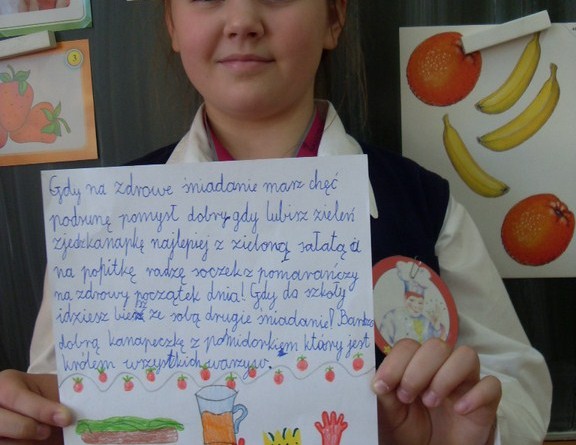 Gdy na zdrowe śniadanie masz chęć
podsunę pomysł dobry, gdy lubisz zieleń
zjedz kanapkę najlepiej z zieloną sałatą a
na popitkę radzę soczek z pomarańczy
na zdrowy początek dnia! Gdy do szkoły
idziesz bierz ze sobą drugie śniadanie! Bardzo
dobrą kanapeczkę z pomidorkiem który jest
królem wszystkich warzyw.
3